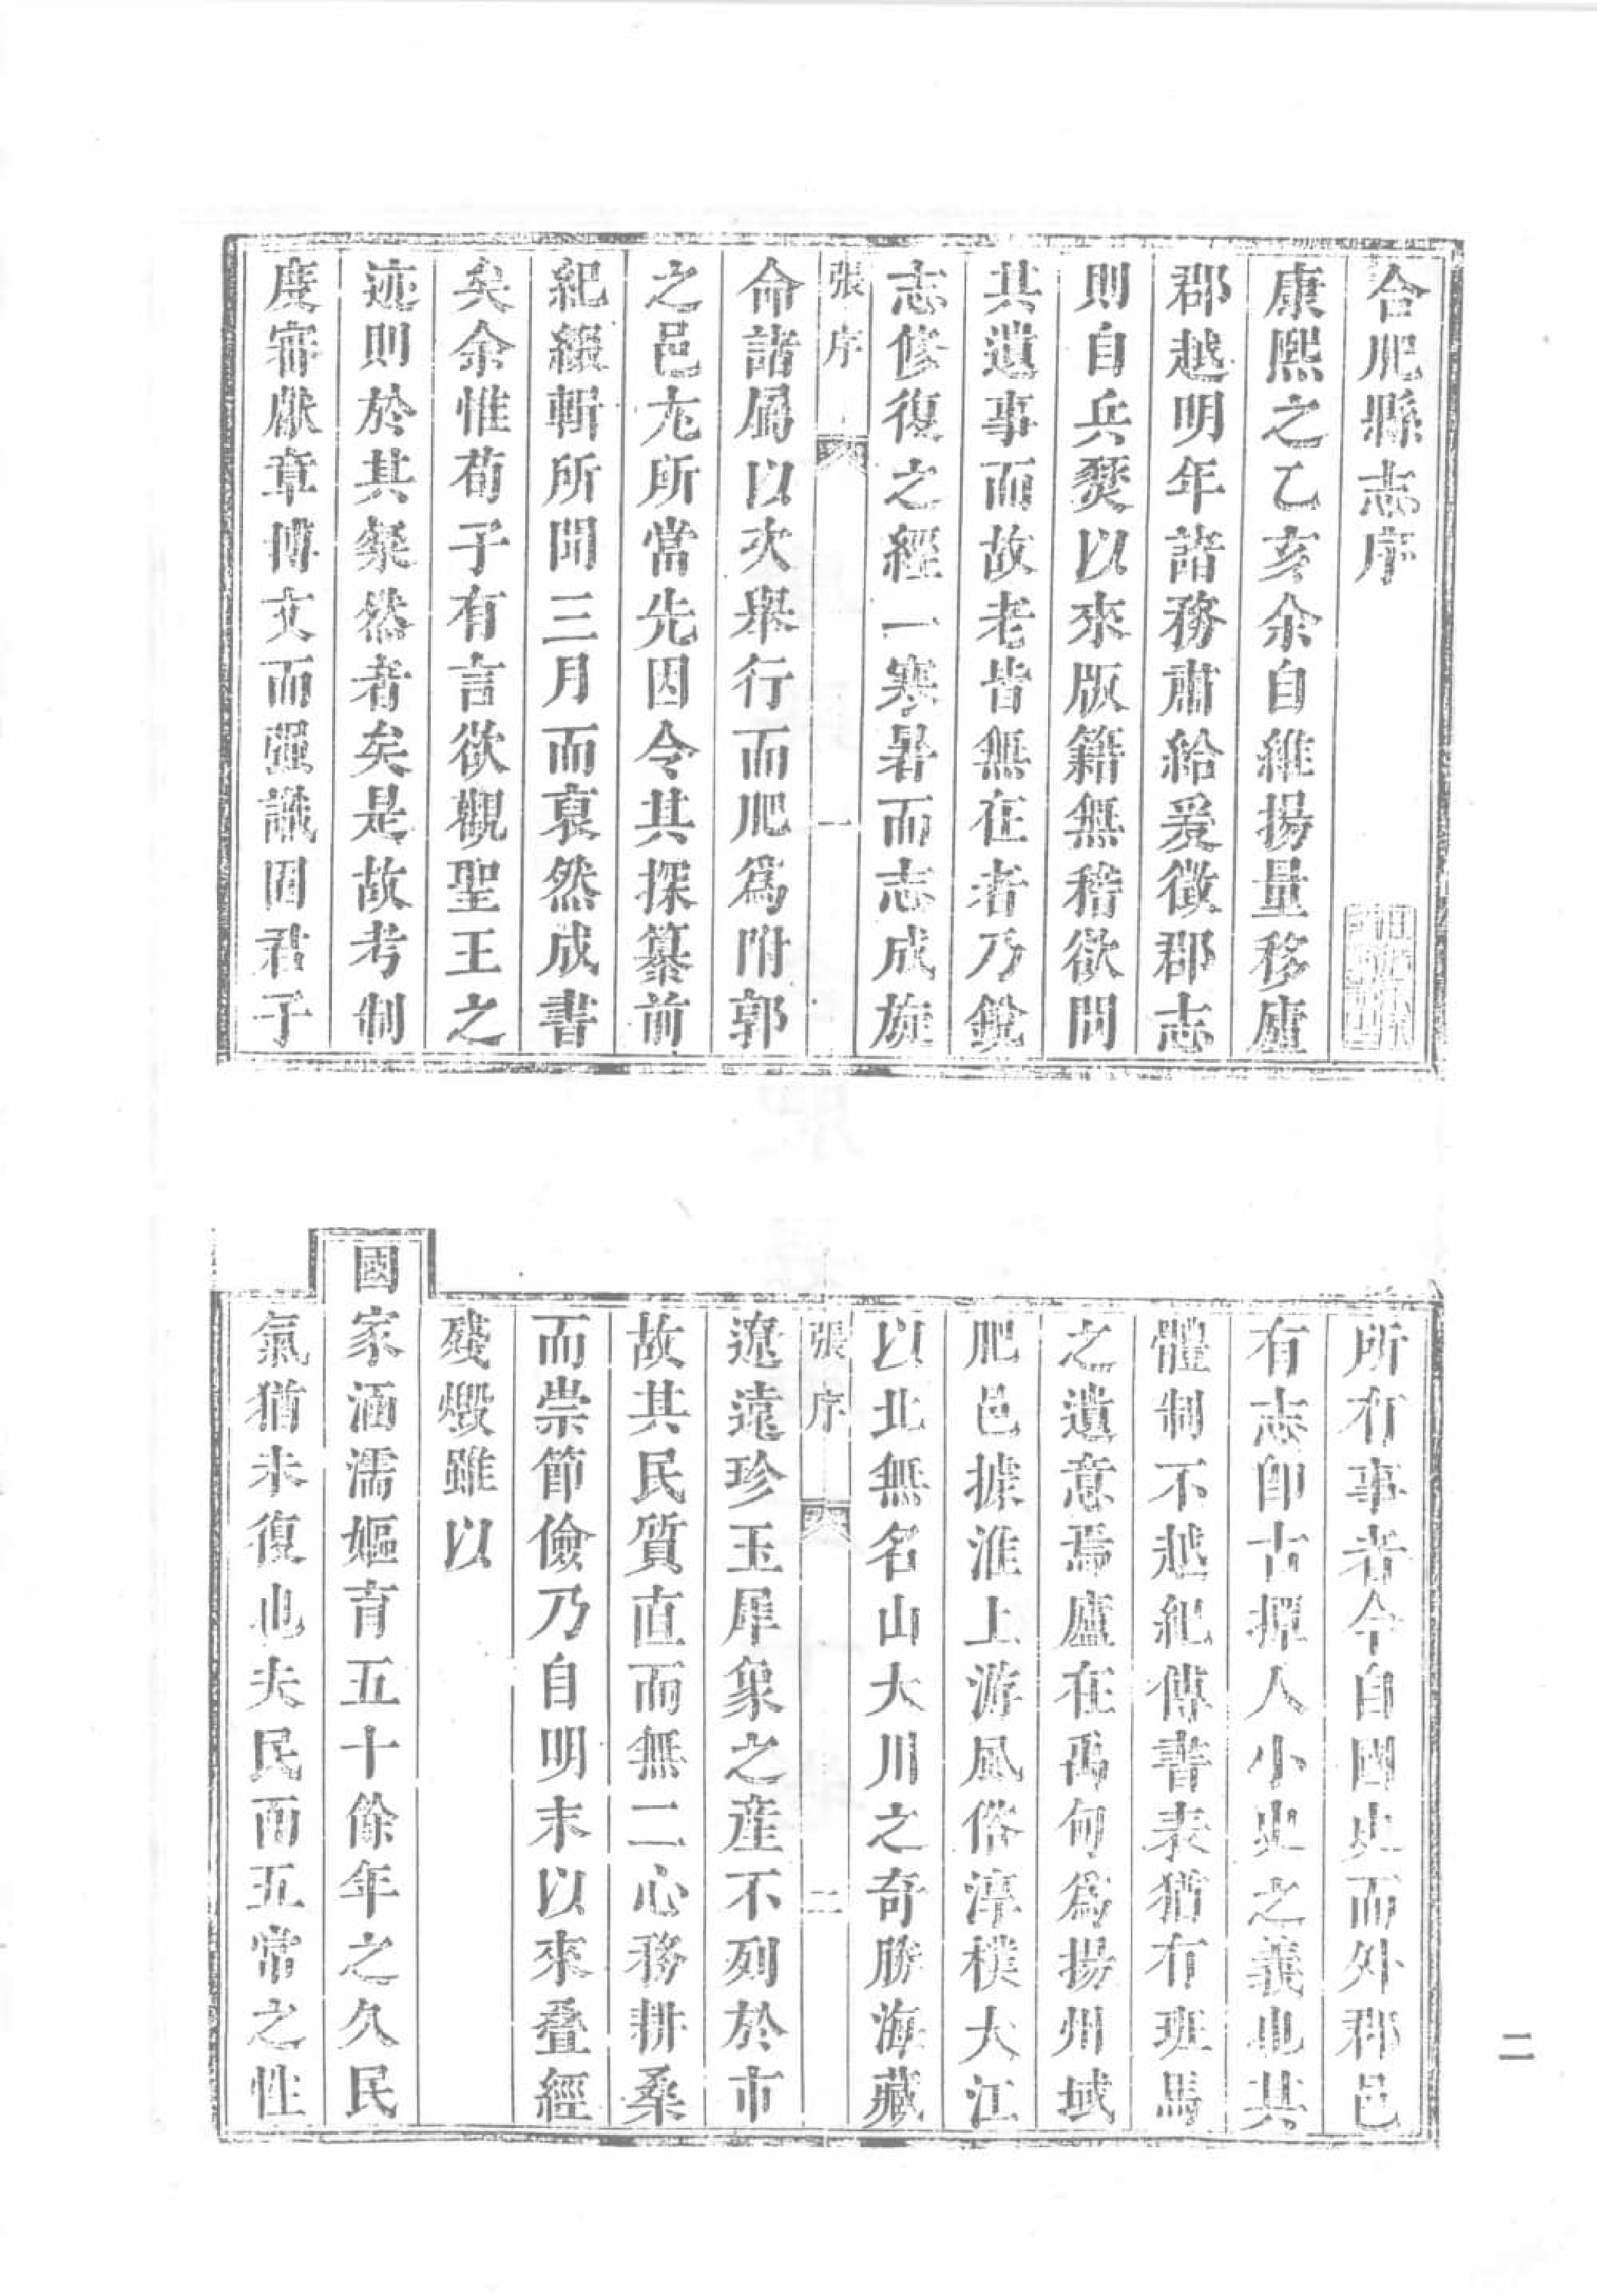 合肥縣志序
康熙之乙亥余自維揚量移廬
郡越明年諸務肅給爰徵郡志
則自兵燹以來版籍無稽欲問
其遺事而故老皆無在者乃銳
志修復之經一寒暑而志成旋
張序
一
命諸屬以次舉行而肥爲附郭
之邑尤所當先因令其探纂前
紀綴輯所聞三月而裒然成書
矣余惟荀子有言欲觀聖王之
迹則於其粲然者矣是故考制
度審獻章博文而强識固君子
所有事者今自國史而外郡邑
有志卽古撢人小史之義也其
體制不越紀傳書表猶有班馬
之遺意焉廬在禹甸爲揚州域
肥邑據淮上游風俗淳樸大江
以北無名山大川之奇勝海藏
張序
二
遼遠珍玉犀象之產不列於市
故其民質直而無二心務耕桑
而崇節儉乃自明末以來叠經
殘燬雖以
國家涵濡嫗育五十餘年之久民
氣猶未復也夫民函五常之性
二